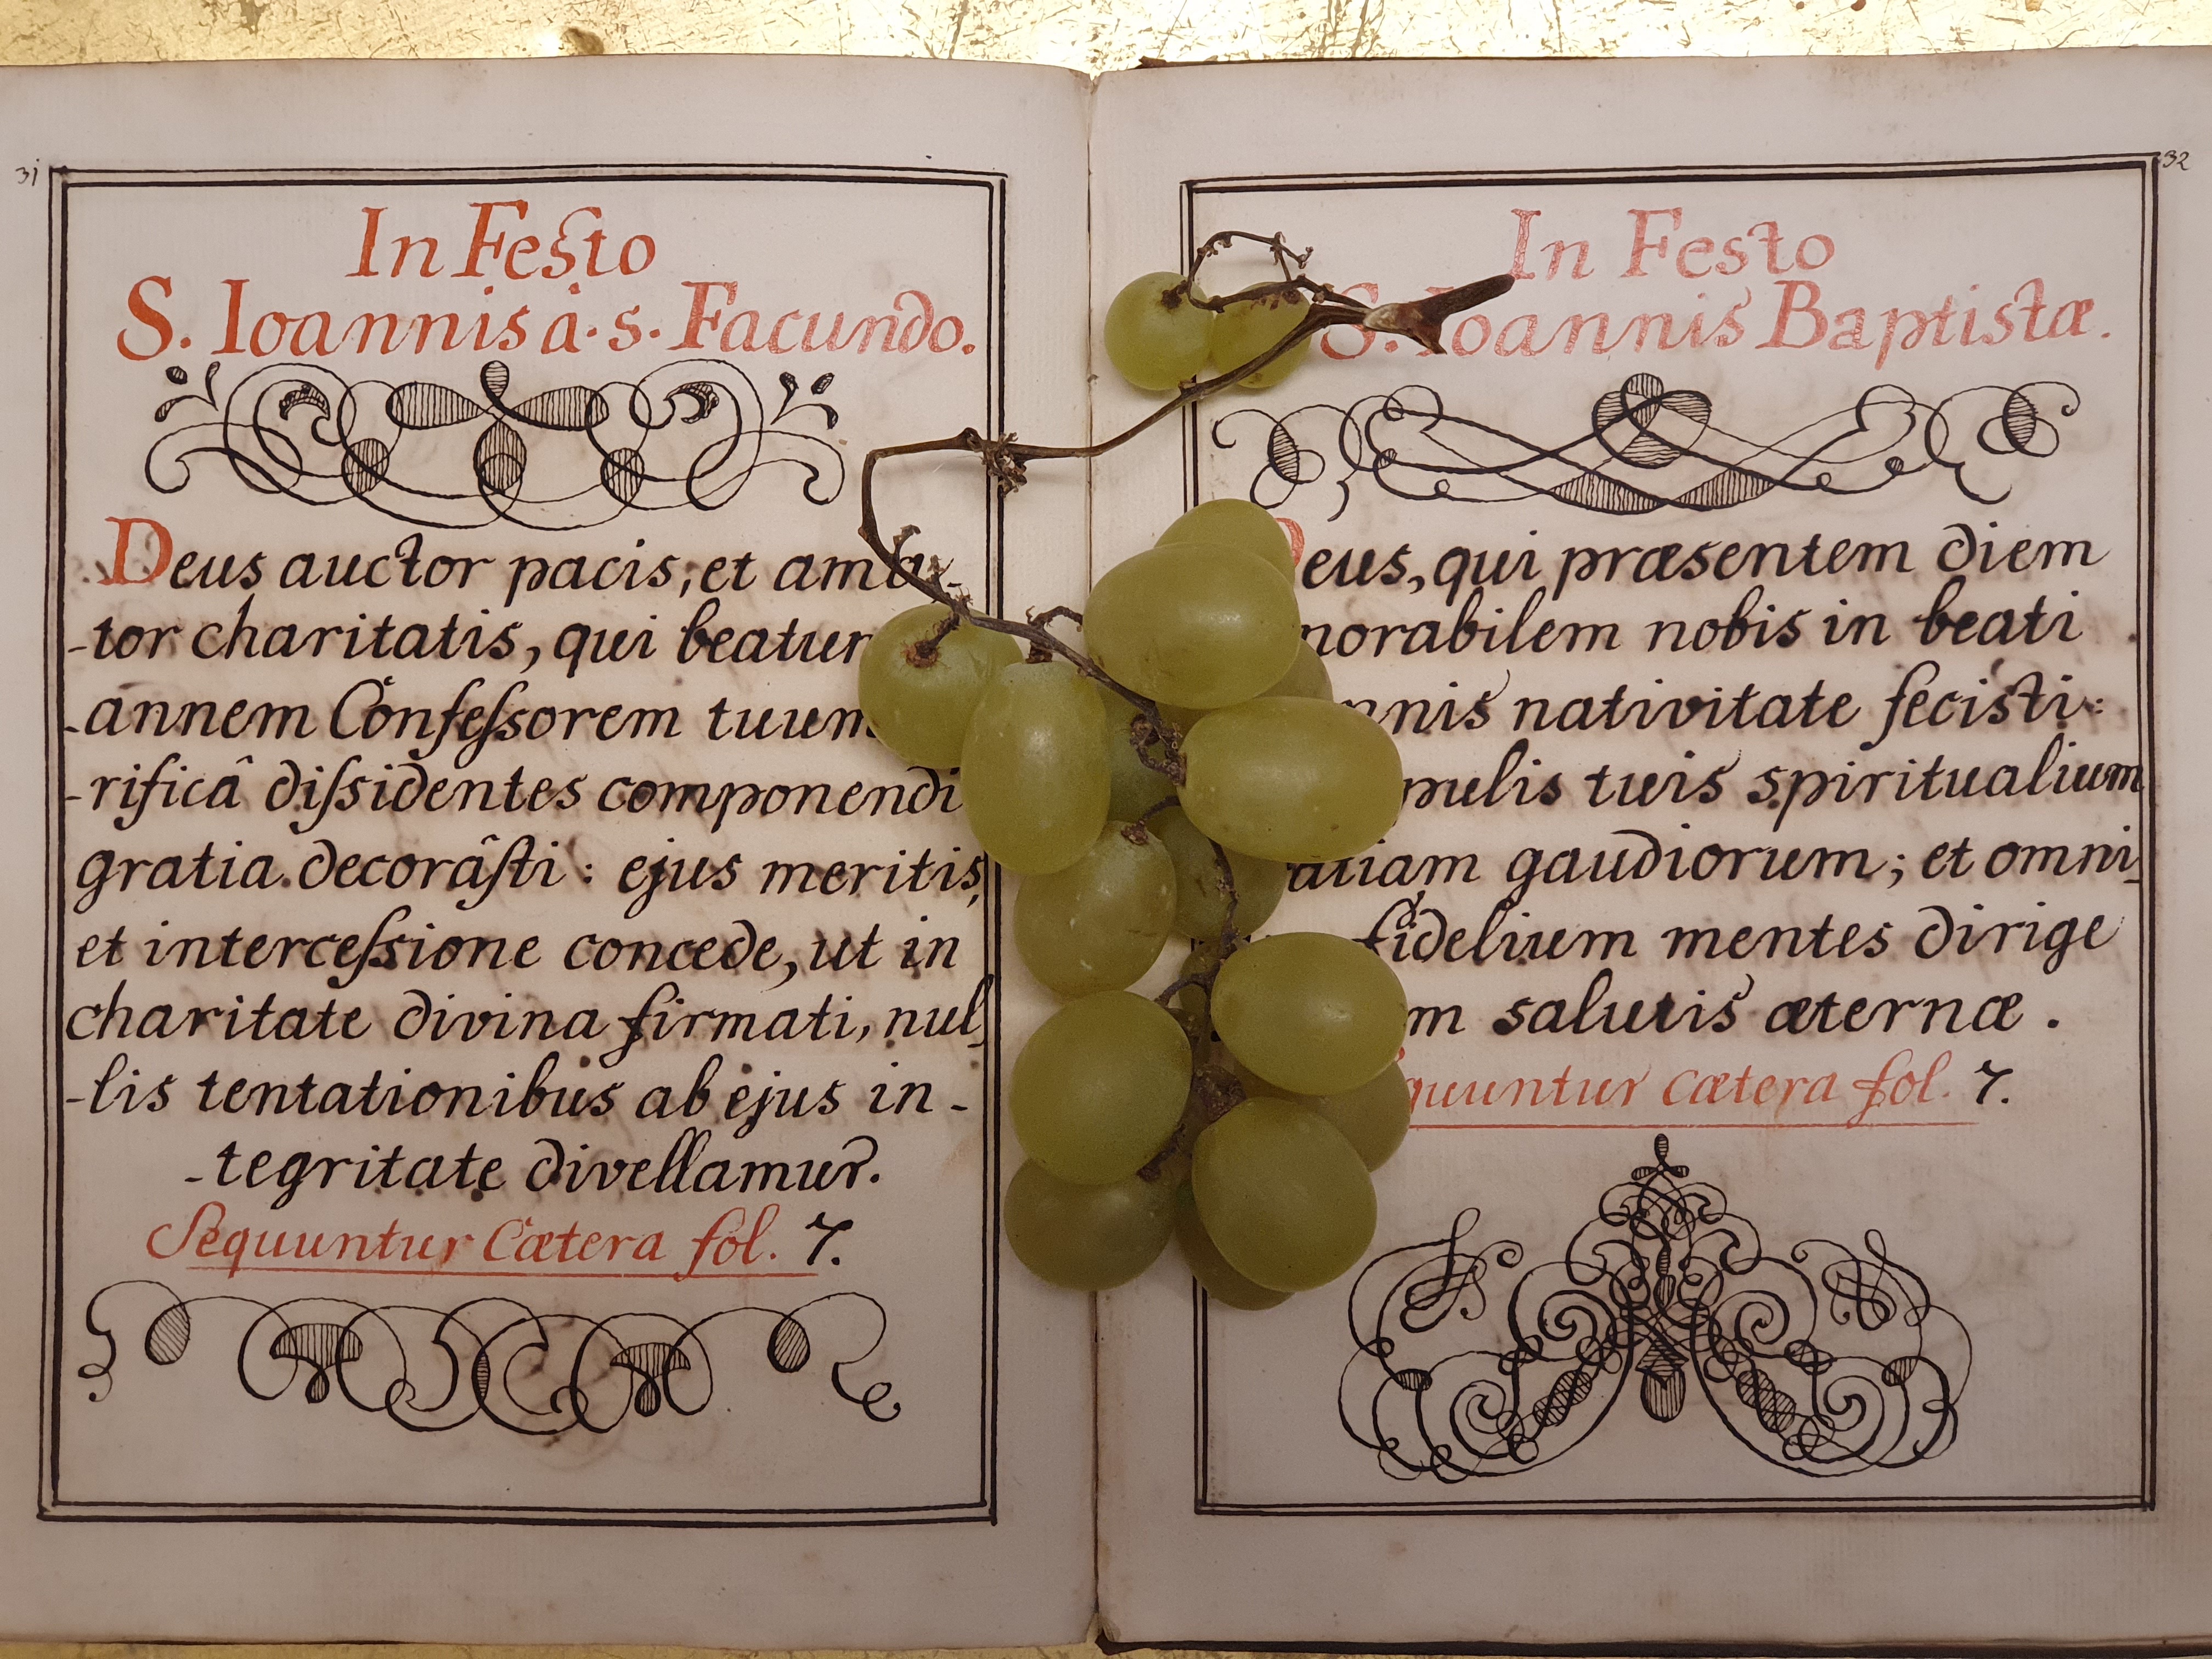 31
In Festo
S. Ioannis à s. Facundo.
Deus auctor pacis, et ama-
-tor charitatis, qui
-annem Confeſsorem tuum
-rificâ diſsidentes componendi
gratia decorâſti: ejus meritis,
et interceſsione concede, ut in
charitate divina firmati, nul-
-lis tentationibus ab ejus in-
-tegritate divellamur.
Sequuntur Cætera fol. 7.
32
In Festo
S. Ioannis Baptistæ.
Deus, qui præsentem diem
norabilem nobis in beati
nnis nativitate fecisti:
pulis tuis spiritualium
atiam gaudiorum; et omni-
fidelium mentes dirige
m salutis æternæ.
quuntur Cætera fol. 7.